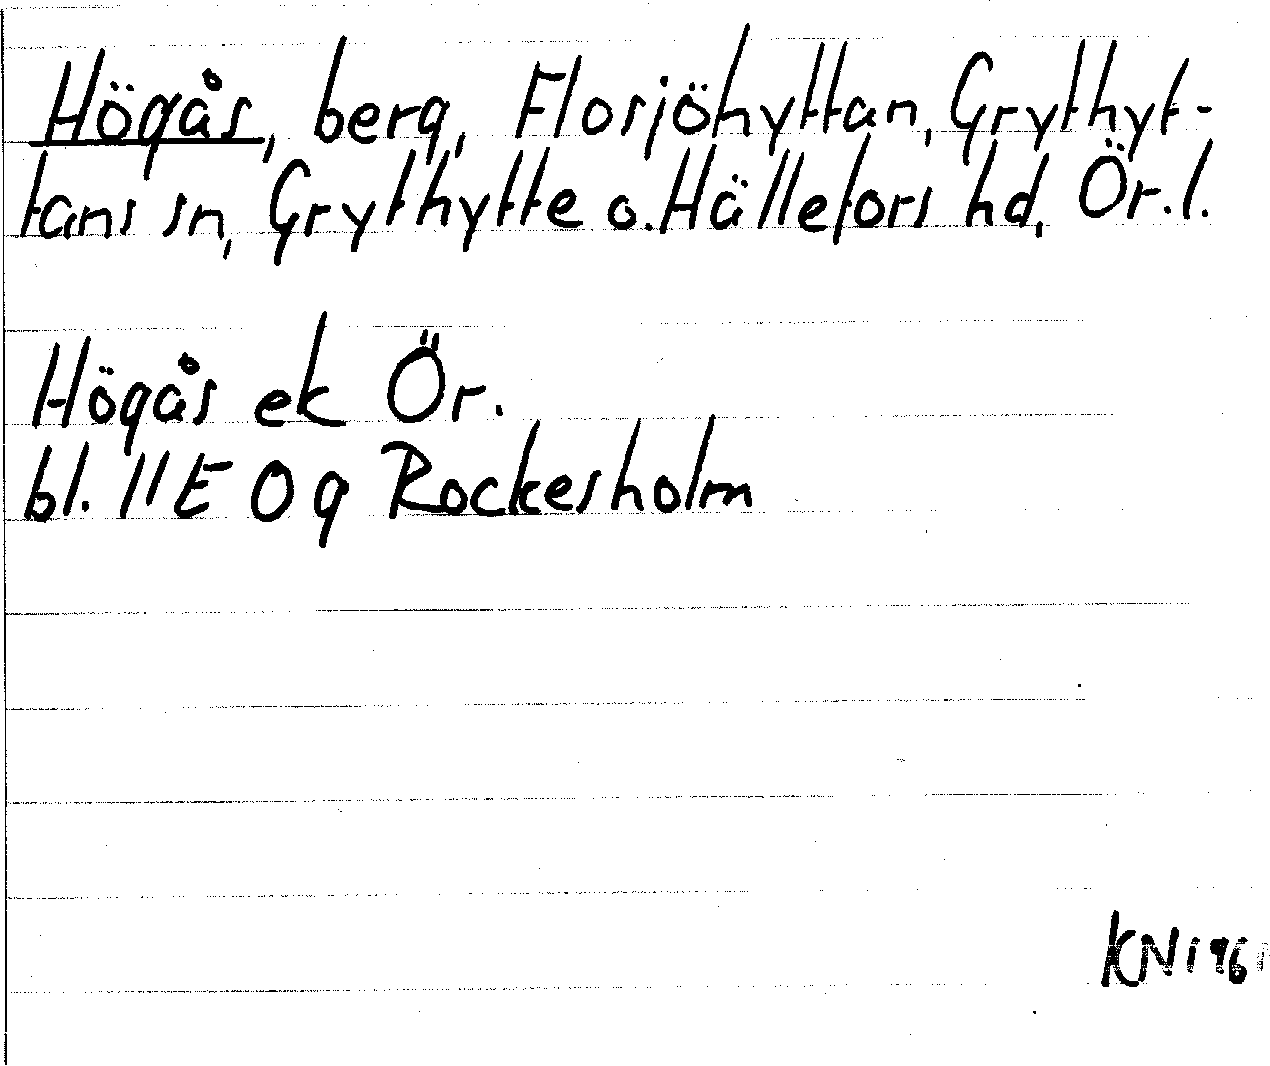 Högås, berg, Flosjöhyttan, Grythyt-
tans sn, Grythytte o. Hällefors hd, Ör. l.
Högås ek Ör.
bl. 11E 0g Rockesholm
KN 1961